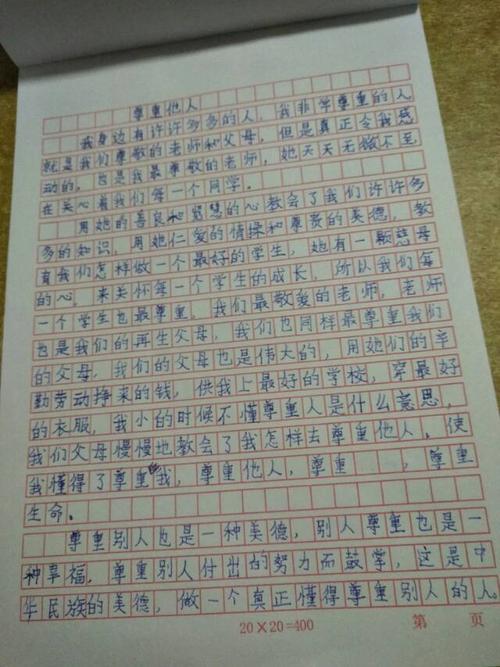 尊重他人
我身边有许许多多的人，我非常尊重的人
就是我们尊敬的老师和父母，但是真正令我感
动的，也是我最尊敬的老师，她天天无微不至
在关心着我们每一个同学。
用她的善良和智慧的心教会了我们许许多
多的知识，用她仁爱的情操和尊贵的美德，教
育我们怎样做一个最好的学生，她有一颗慈母
的心，来关怀每一个学生的成长，所以我们每
一个学生也最尊重，我们最敬爱的老师，老师
也是我们的再生父母，我们也同样最尊重我们
的父母，我们的父母也是伟大的，用她们的辛
勤劳动挣来的钱，供我上最好的学校，穿最好
的衣服，我小的时候不懂尊重人是什么意思，
我们父母慢慢地教会了我怎样去尊重他人，使
我懂得了尊重我，尊重他人，尊重，尊重
生命。
尊重别人也是一种美德，别人尊重也是一
种幸福，尊重别人付出的努力而鼓掌，这是中
华民族的美德，做一个真正懂得尊重别人的人。
20×20=400
第 页